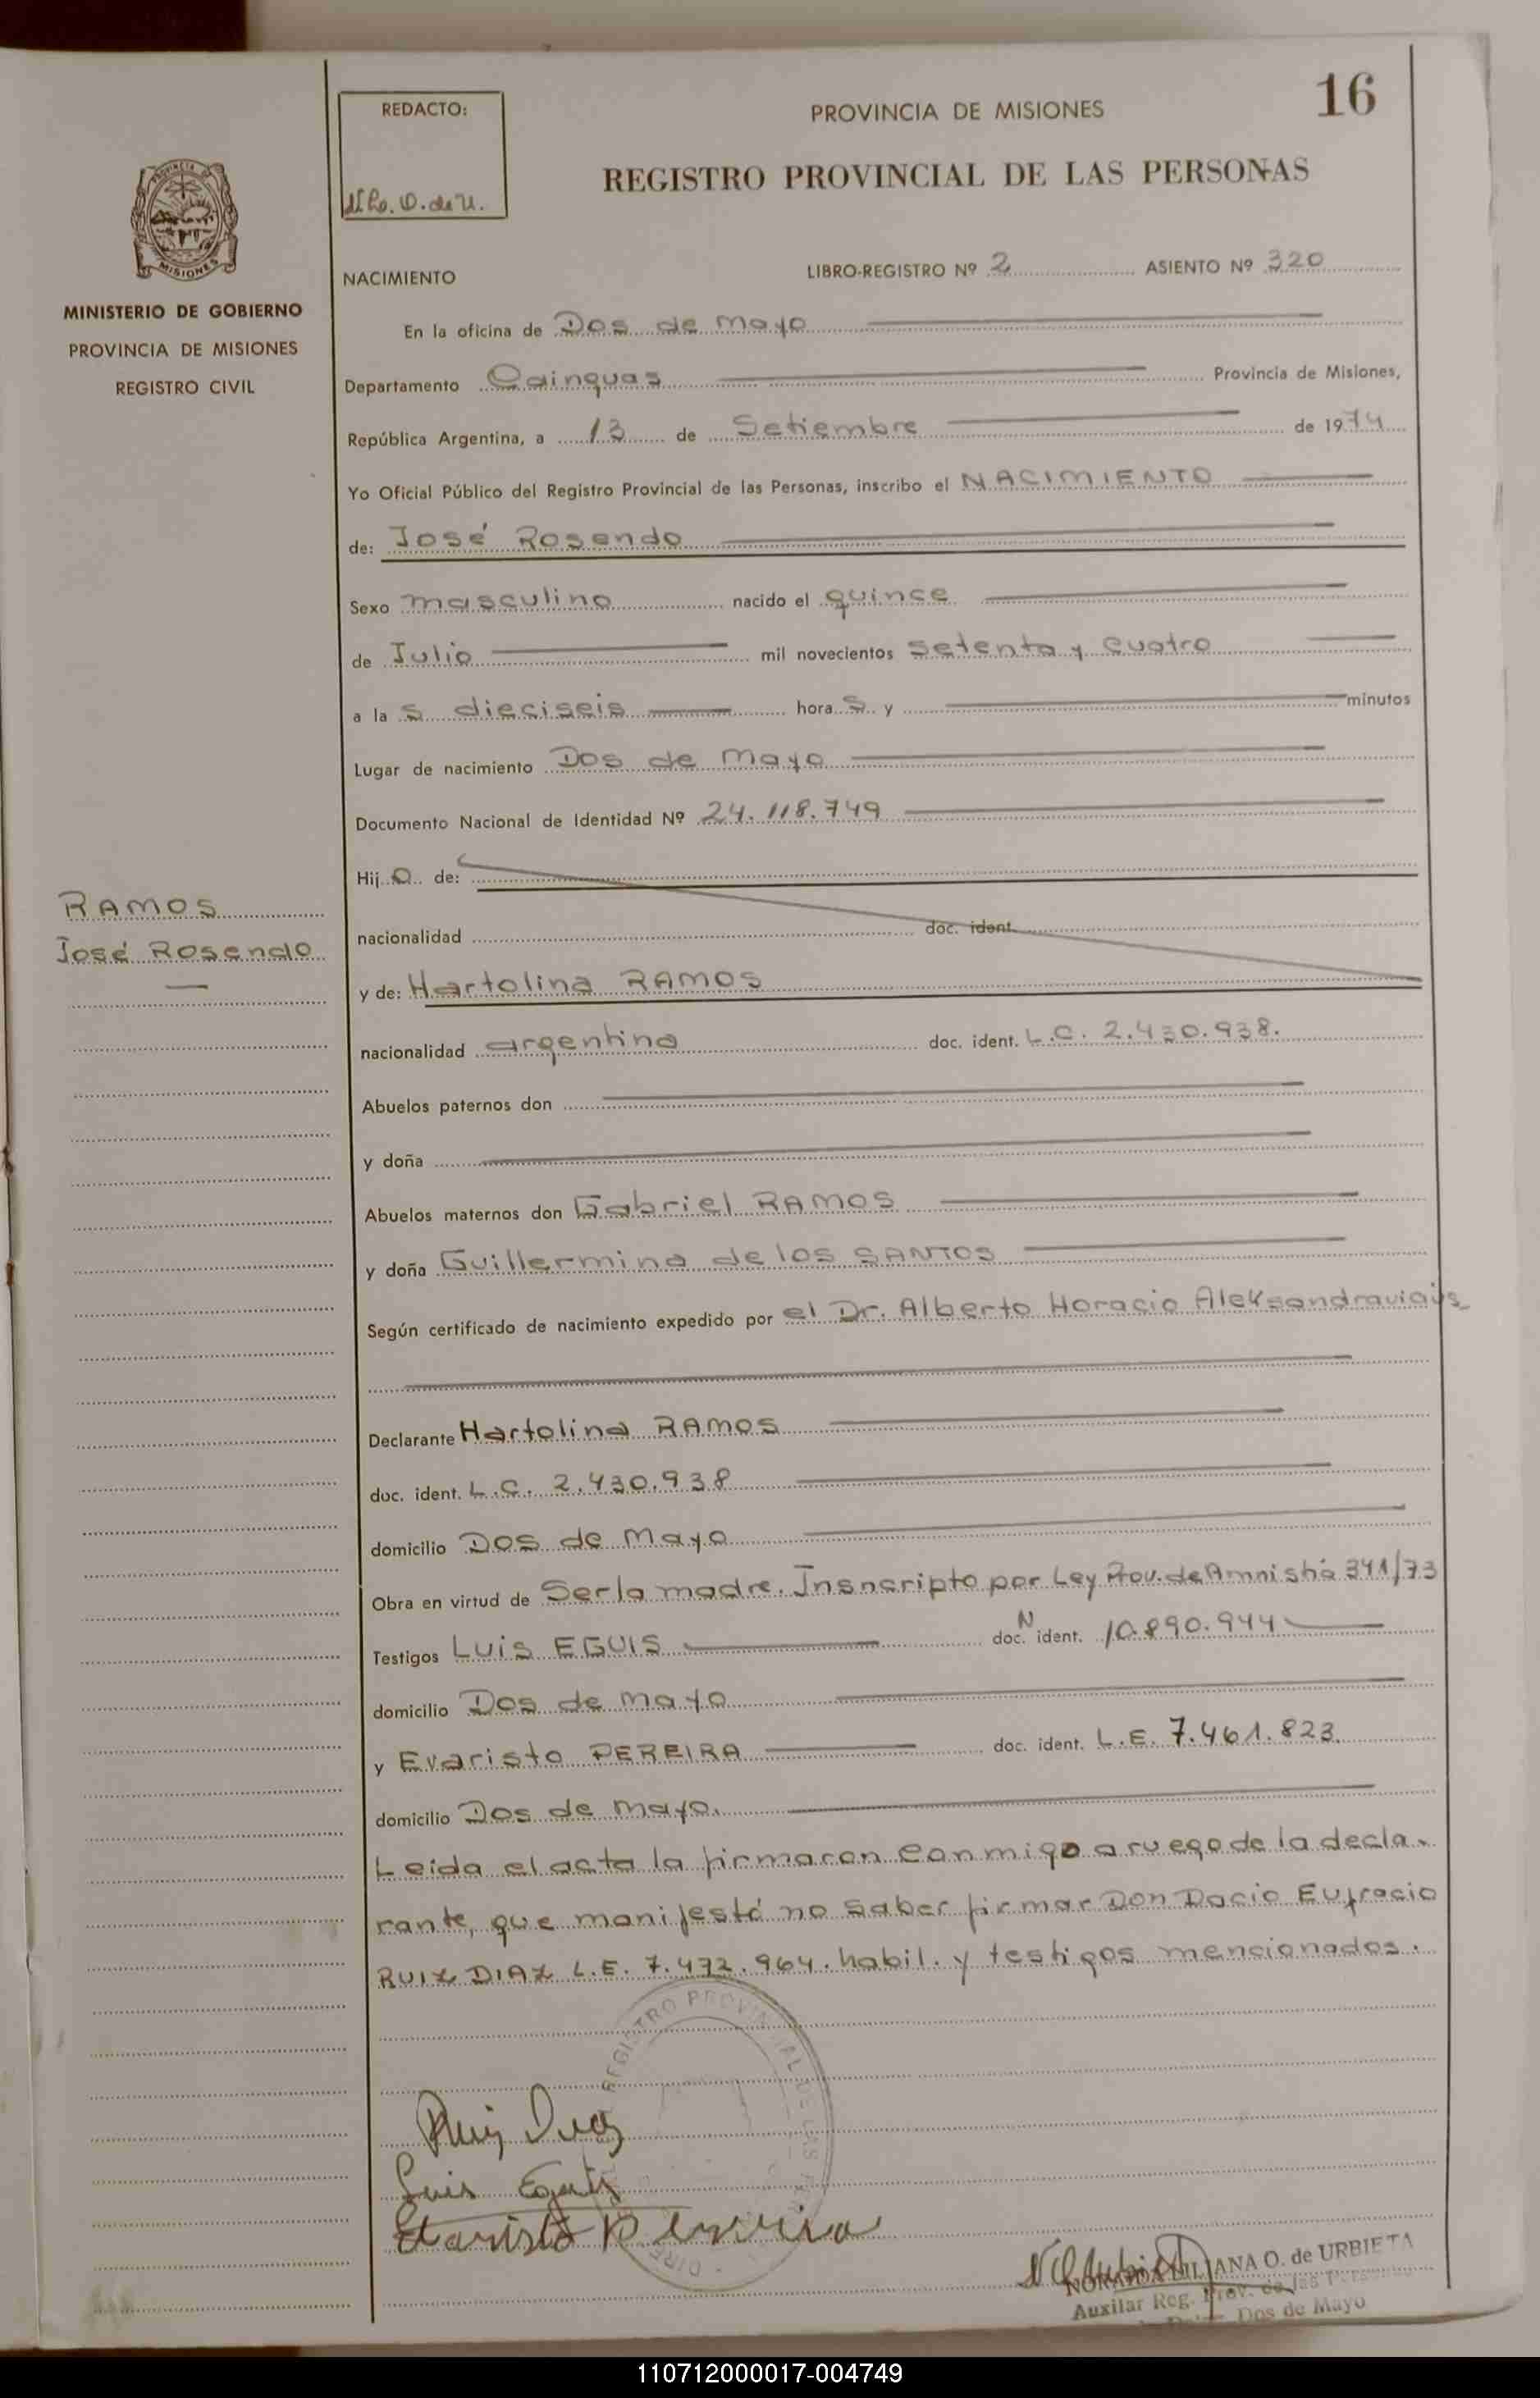 16
REDACTO:
PROVINCIA DE MISIONES
REGISTRO PROVINCIAL DE LAS PERSONAS
O. de U.
PROVINCIA DE
MISIONES
MINISTERIO DE GOBIERNO
PROVINCIA DE MISIONES
REGISTRO CIVIL
NACIMIENTO
LIBRO-REGISTRO Nº 2 ASIENTO Nº 320
En la oficina de Dos de Mayo
Departamento Cainguas Provincia de Misiones,
República Argentina, a 13 de Setiembre de 1974
Yo Oficial Público del Registro Provincial de las Personas, inscribo el NACIMIENTO
de: José Rosendo
Sexo masculino nacido el quince
de Julio mil novecientos setenta y cuatro
a las dieciseis horas y minutos
Lugar de nacimiento Dos de Mayo
Documento Nacional de Identidad Nº 24.118.749
Hijo de:
RAMOS
José Rosendo
nacionalidad doc. ident.
y de: Hartolina RAMOS
nacionalidad argentina doc. ident. L.C. 2.430.938.
Abuelos paternos don
y doña
Abuelos maternos don Gabriel RAMOS
y doña Guillermina de los SANTOS
Según certificado de nacimiento expedido por el Dr. Alberto Horacio
Declarante Hartolina RAMOS
doc. ident. L.C. 2.430.938
domicilio Dos de Mayo
Obra en virtud de Ser la madre. Insncripto por Ley Prov. de Amnistía 341/73
Testigos Luis EGUIS doc. N ident. 10.890.944
domicilio Dos de Mayo
y Evaristo PEREIRA doc. ident. L.E. 7.461.823.
domicilio Dos de Mayo.
Leida el acta la firmaron conmigo a ruego de la decla-
rante, que manifestó no saber firmar Don Dacio Eufracio
RUIZ DIAZ L.E. 7.472.964. habil. y testigos mencionados.
REGISTRO PROVINCIAL DE LAS
Ruiz Diaz
Luis Eguis
Evaristo Pereira
LILIANA O. de URBIETA
Auxilar Reg. Prov. de las Personas
Dos de Mayo
110712000017-004749